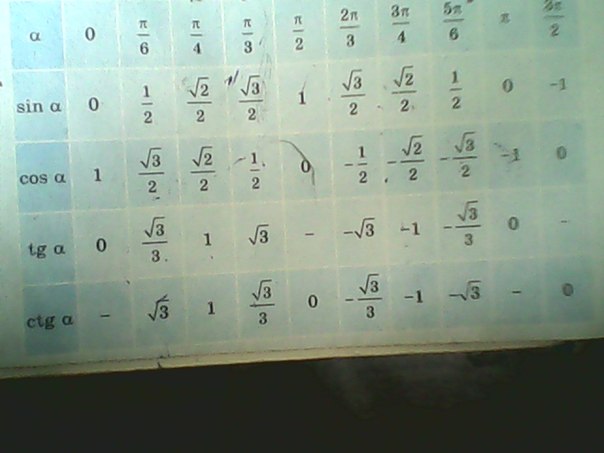 α 0 π/6 π/4 π/3 π/2 2π/3 3π/4 5π/6 π 3π/2
sin α 0 1/2 √2/2 √3/2 1 √3/2 √2/2 1/2 0 -1
cos α 1 √3/2 √2/2 1/2 0 -1/2 -√2/2 -√3/2 -1 0
tg α 0 √3/3 1 √3 – -√3 -1 -√3/3 0 –
ctg α – √3 1 √3/3 0 -√3/3 -1 -√3 – 0